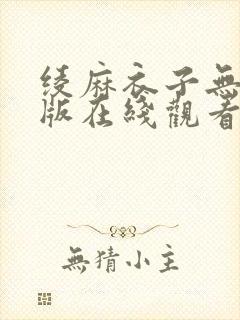 绫麻衣子無
版在綫觀看
無猜小主